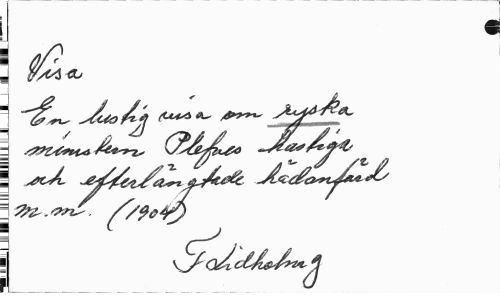 Visa
En lustig visa om ryska
ministern Plefves hastiga
och efterlängtade hädanfärd
m.m. (1904)
F Lidholm g